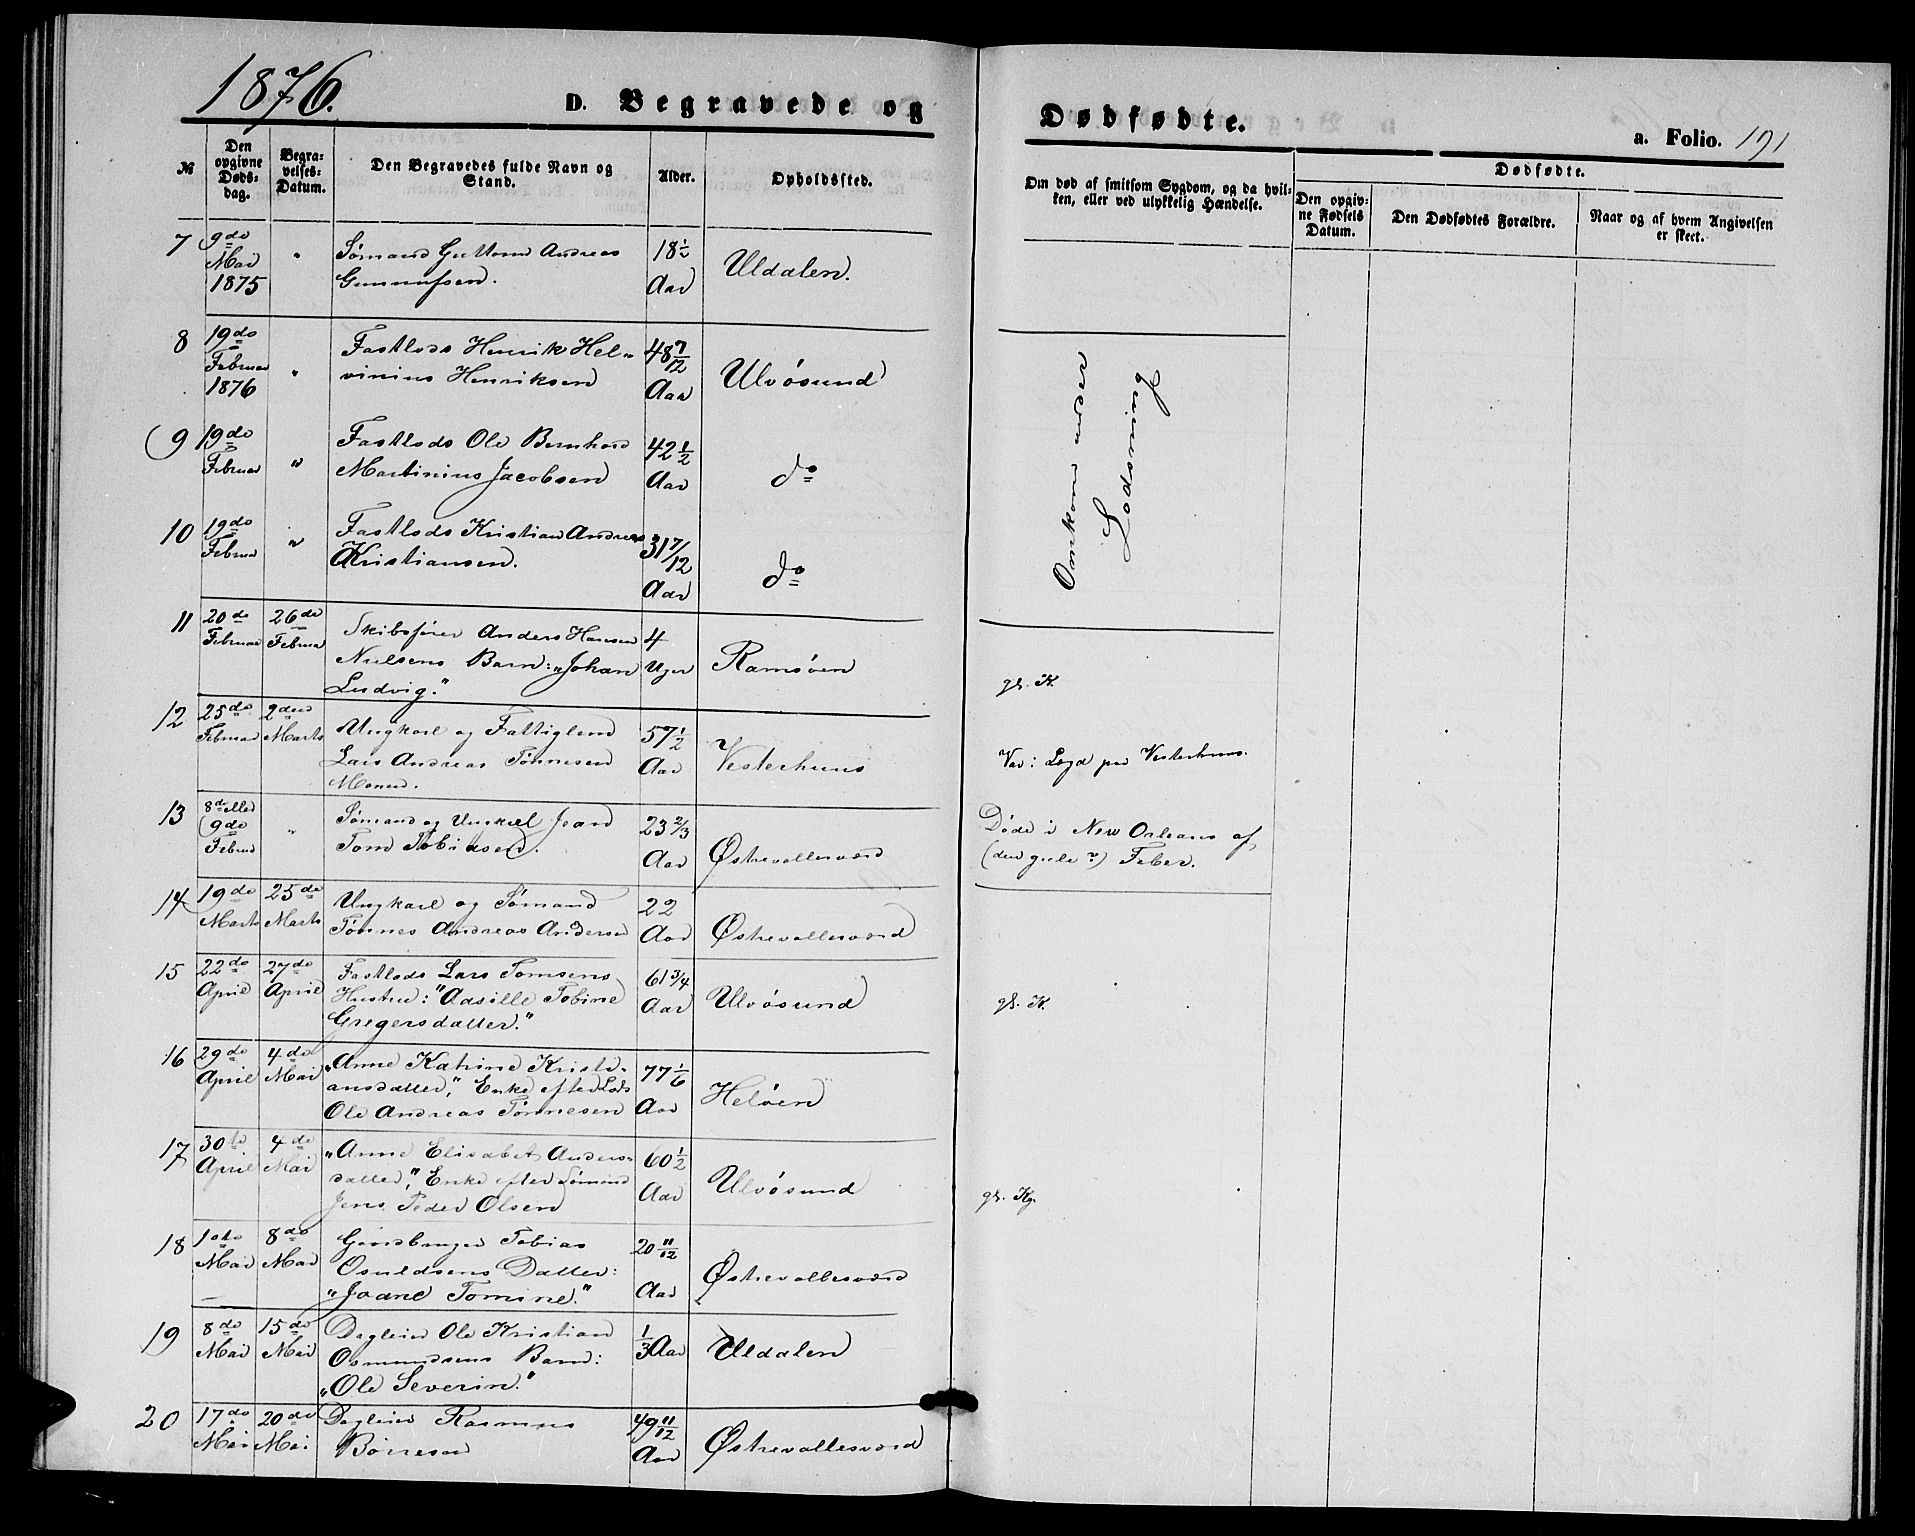 1876.
D. Begravede og
Dødfødte.
a. Folio. 191
№
Den opgivne Døds-dag.
Begra-velses-Datum.
Den Begravedes fulde Navn og Stand.
Alder.
Opholdssted.
Om død af smitsom Sygdom, og da hvil-ken, eller ved ulykkelig Hændelse.
Dødfødte.
Den opgiv-ne Fødsels Datum.
Den Dødfødtes Forældre.
Naar og af hvem Angivelsen er skeet.
7 9de Mai 1875 " Sømand Guttorm Andreas
Gunnufsen. 18 1/2 Aar Uldalen.
8 19de Februar 1876 " Fastlods Henrik Hel-
vinius Henriksen 48 7/12 Aar Ulvøsund
Omkom under
Lodsning
9 19de Februar " Fastlods Ole Bernhard
Martinius Jacobsen 42 1/2 Aar do
10 19de Februar " Fastlods Kristian Andreas
Kristiansen. 31 7/12 Aar do
11 20de Februar 26de Februar Skibsfører Anders Hansen
Nielsens Barn: "Johan
Ludvig." 4 Uger Ramsøen gl. K.
12 25de Februar 2den Marts Ungkarl og Fattiglem
Lars Andreas Tønnesen
57 1/2 Aar Vesterhuus Var: Lægd paa Vesterhuus.
13 8de eller 9de Februar " Sømand og Ungkarl
Tom Tobiasen. 23 2/3 Aar Østrevallesværd Døde i New Orleans af
(den gule?) Feber.
14 19de Marts 25de Marts Ungkarl og Sømand
Tønnes Andreas Andersen 22 Aar Østrevallesværd
15 22de April 27de April Fastlods Lars Tomsens
Hustru: "Aasille Tobine
Gregersdatter." 61 3/4 Aar Ulvøsund gl. K.
16 29de April 4de Mai "Anne Katrine Kristi-
ansdatter," Enke efter Lods
Ole Andreas Tønnesen 77 1/6 Aar Heløen
17 30te April 4de Mai "Anne Elisabet Anders-
datter," Enke efter Sømand
Jens Peder Olsen 60 1/2 Aar Ulvøsund gl. Kg.
18 1ste Mai 8de Mai Gaardbruger Tobias
Osuldsens Datter:
"Joane Tomine." 20 11/12 Aar Østrevallesværd
19 8de Mai 15de Mai Dagleier Ole Kristian
Osmundsens Barn:
"Ole Severin." 1/3 Aar Uldalen
20 17de Mai 20de Mai Dagleier Rasmus
Børresen 49 11/12 Aar Østrevallesværd